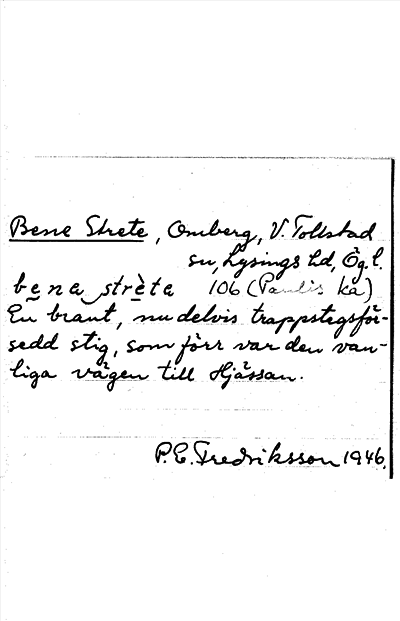 Bene Strete, Omberg, V. Tollstad
sn, Lysings hd, Ög.l.
bena strèta 106 (Paulis ka)
En brant, nu delvis trappstegsför-
sedd stig, som förr var den van-
liga vägen till Hjässan.
P.E. Fredriksson 1946.